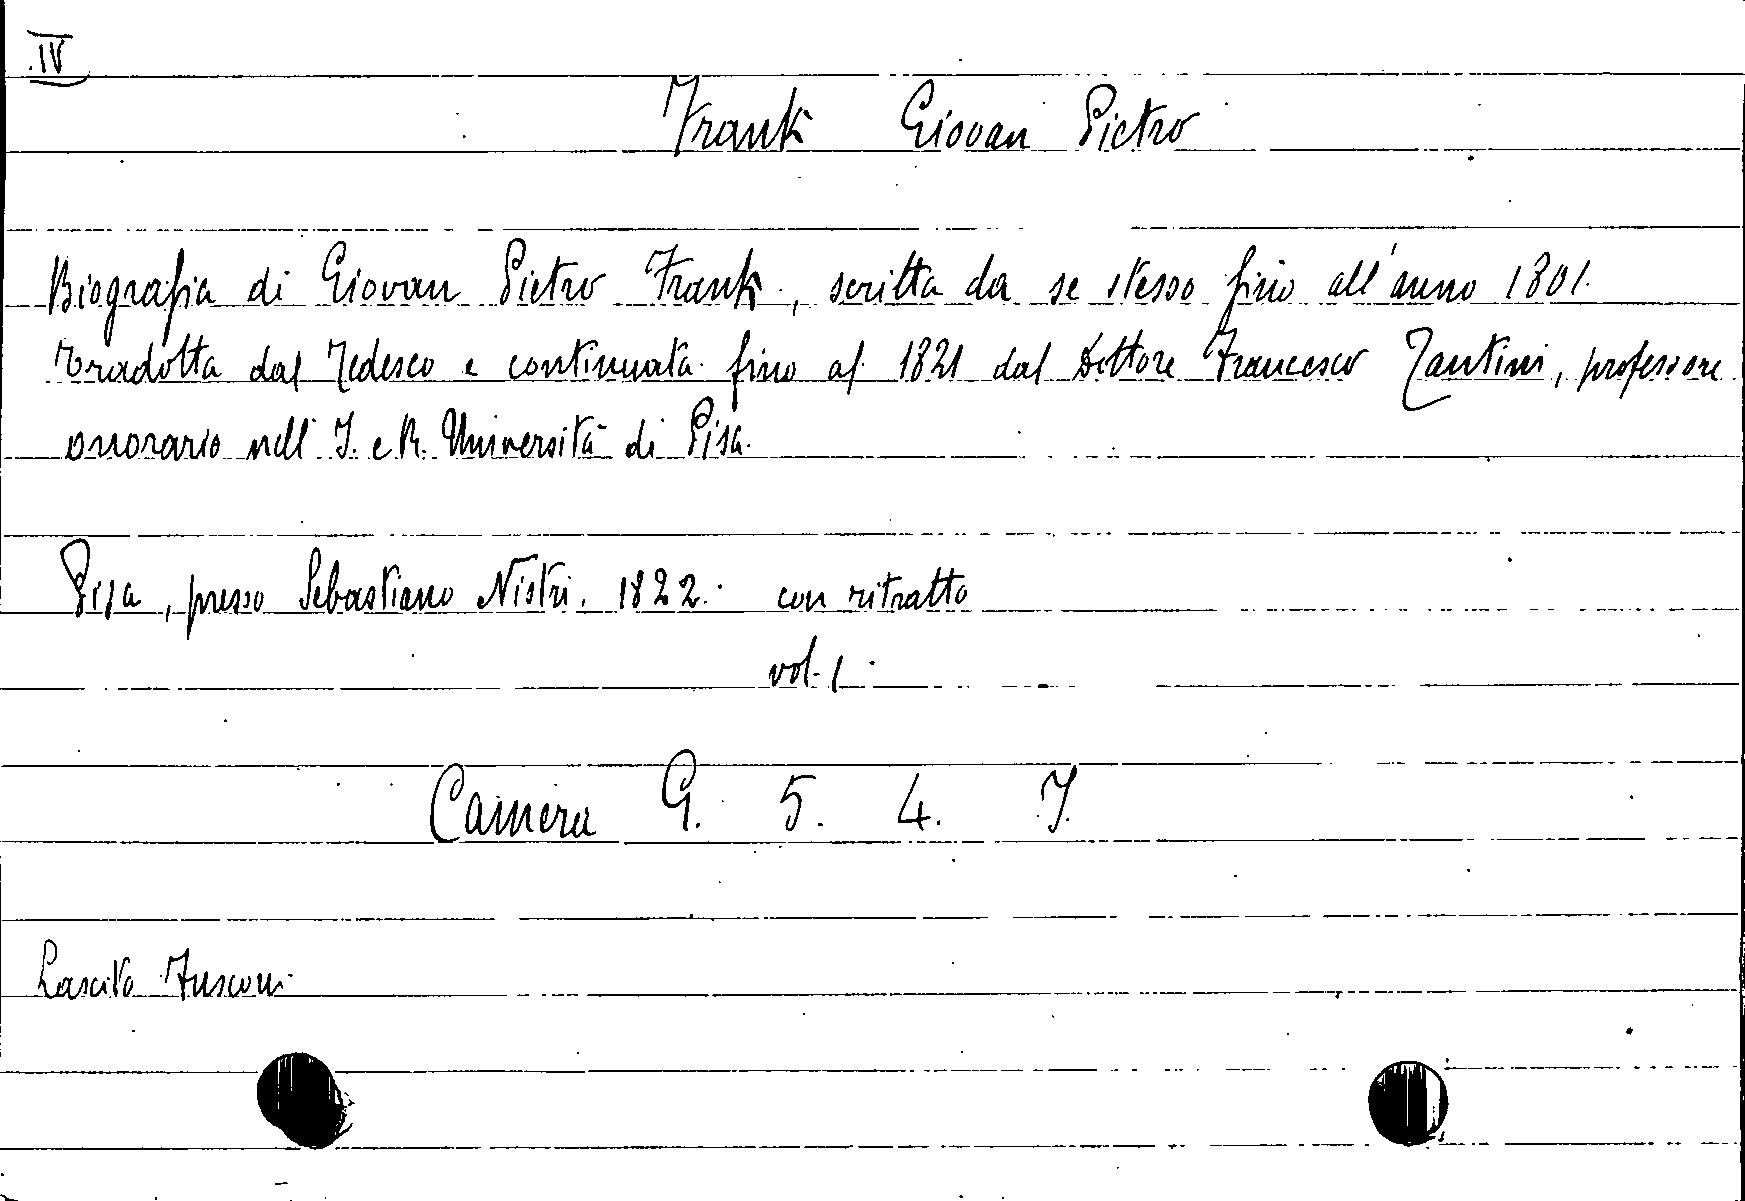 IV
Frank Giovan Pietro
Biografia di Giovan Pietro Frank, scritta da se stesso fino all'anno 1801.
tradotta dal Tedesco e continuata fino al 1821 dal Dottore Francesco Zantini, professore
onorario nell' I. e R. Università di Pisa.
Pisa, presso Sebastiano Nistri. 1822. con ritratto
vol. 1
Camera G. 5. 4. I.
Lascito Fusconi